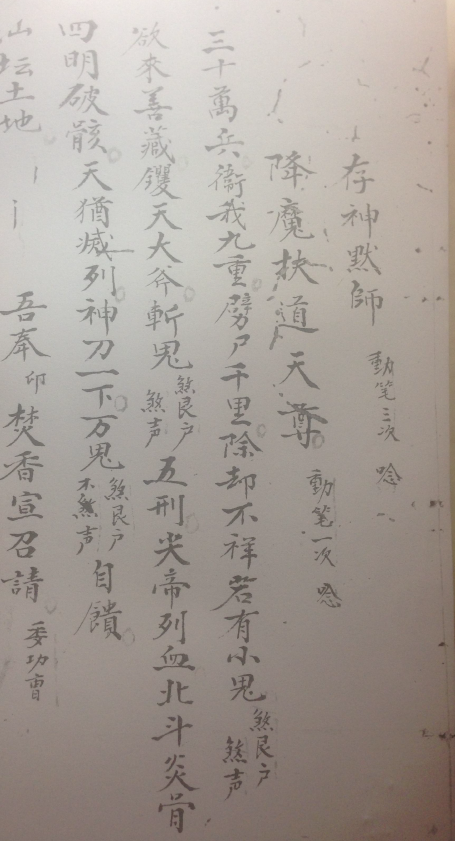 存神默師 動笔三次 唸
降魔扶道天尊 動笔一次 唸
三十萬兵衛我九重劈尸千里除却不祥若有小鬼 煞艮户 煞声
欲來善藏钁天大斧斬鬼 煞艮户 煞声 五刑 帝列血北斗炎骨
四明破骸天猶滅列神刀一下万鬼 煞艮户 不煞声 自饋
山坛土地 吾奉 印 焚香宣召請 委功曹